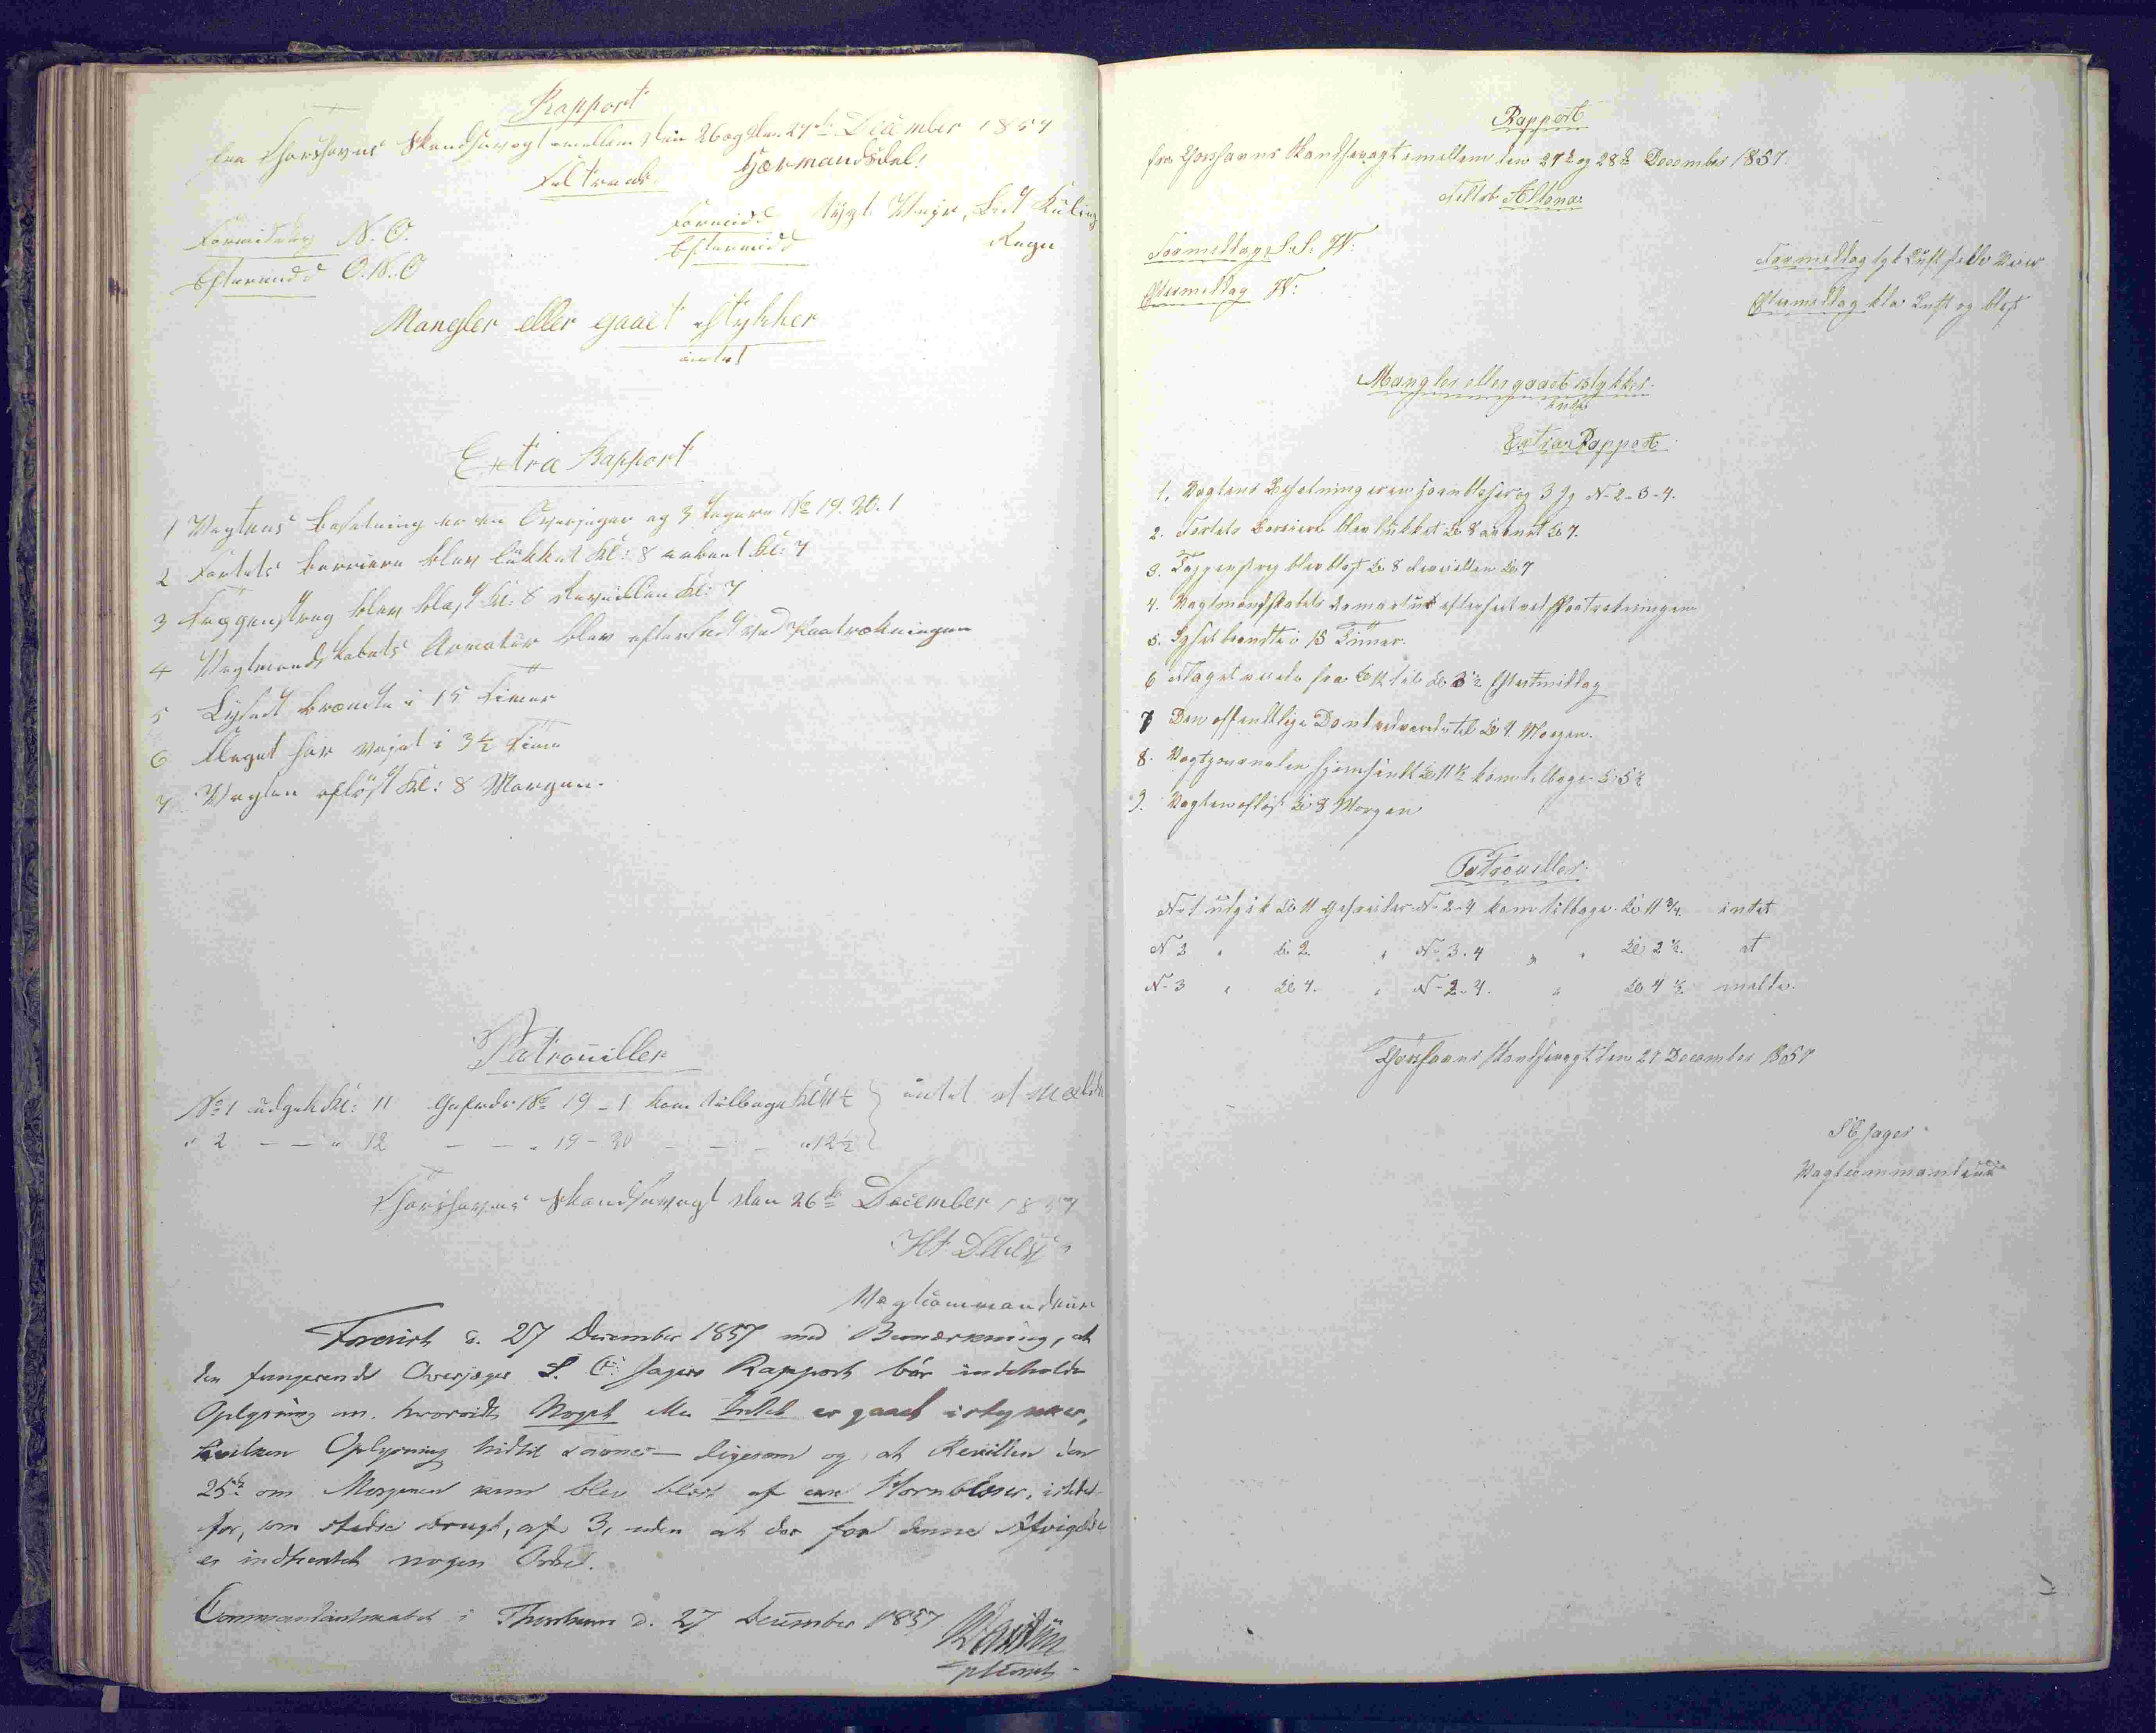 Rapport
fra Thorshavns Skandsevagt imellem den 26 og den 27de December 1857
Feltraab Hærmandsdal!
Formiddag N. O. Formidd tygt Vejr, Lidt Kuling
Eftermidd O. N. O Eftermidd Regn
Mangler eller gaaet istykker
intet
Extra Rapport
1 Vagtens Besetning er en Overjæger og 3 Jægere No 19. 20. 1
2 Fortets Barriere blev lukket Kl: 8 aabent Kl: 7
3 Tappenstreg blev blæst Kl: 8 Reveillen Kl: 7
4 Vagtmandskabets Armatur blev efterseet ved Paatrækningen
5 Lyset brændte i 15 Timer
6 Flaget har vejet i 3½ Time
7 Vagten afløst Kl: 8 Morgen.
Patrouiller
No 1 udgik Kl: 11 Gefreder No 19 - 1 kom tilbage Kl 11½ intet at melde
" 2 — — " 12 — — " 19 - 20 — — — " 12½
Thorshavns Skandsevagt den 26de December 1857
Vagtcommandeur
Foreviist d. 27 December 1857 med Bemærkning, at
den fungerende Overjæger S. C. Jagers Rapport bør indeholde
Oplysning om, hvorvidt Noget eller Intet er gaaet istykker,
hvilken Oplysning hidtil savnes — ligesom og, at Reveillen den
25de om Morgenen kun blev blæst af een Hornblæser, istedet
for, som stedse brugt, af 3, uden at der for denne Afvigelse
er indhentet nogen Ordre.
Commandantskabet i Thorshavn d. 27 December 1857
Rapport
fra Thorshavns Skandsevagt imellem den 27de og 28de December 1857.
Feltrb Altona
Formiddag S. S. W: Formiddag tyk Luft stille Veir
Eftermiddag W: Eftermiddag klar Luft og blæst
Mangler eller gaaet istykker.
intet
Extra Rapport
1. Vagtens Besetning er en Hornblæser og 3 Jg N- 2 - 3 - 4.
2. Fortets Barriere blev lukket Kl 8 aabnet Kl 7.
3. Tappenstreg blev blæst Kl 8 Reveillen Kl 7
4. Vagtmandskabets Armatur efterseet ved Paatrækningen
5. Lyset brændte i 15 Timer.
6 Flaget vejede fra Kl 12 til Kl 3½ Eftermiddag
7 Den offentlige Dands vedvarede til Kl 4 Morgen.
8. Vagtjournalen hjemsendt Kl 11½ kom tilbage Kl 5½
9. Vagten afløst Kl 8 Morgen
Patrouiller.
N- 1 udgik Kl 11 Gefreider N- 2-4 kom tilbage Kl 11¾ intet
N 2 " Kl 2 " N- 3. 4 " " Kl 2½. at
N- 3 " Kl 4. " N- 2-4. " Kl 4½ melde.
Thorshavns Skandsevagt den 27 December 1857
S C Jager
Vagtcommandeur